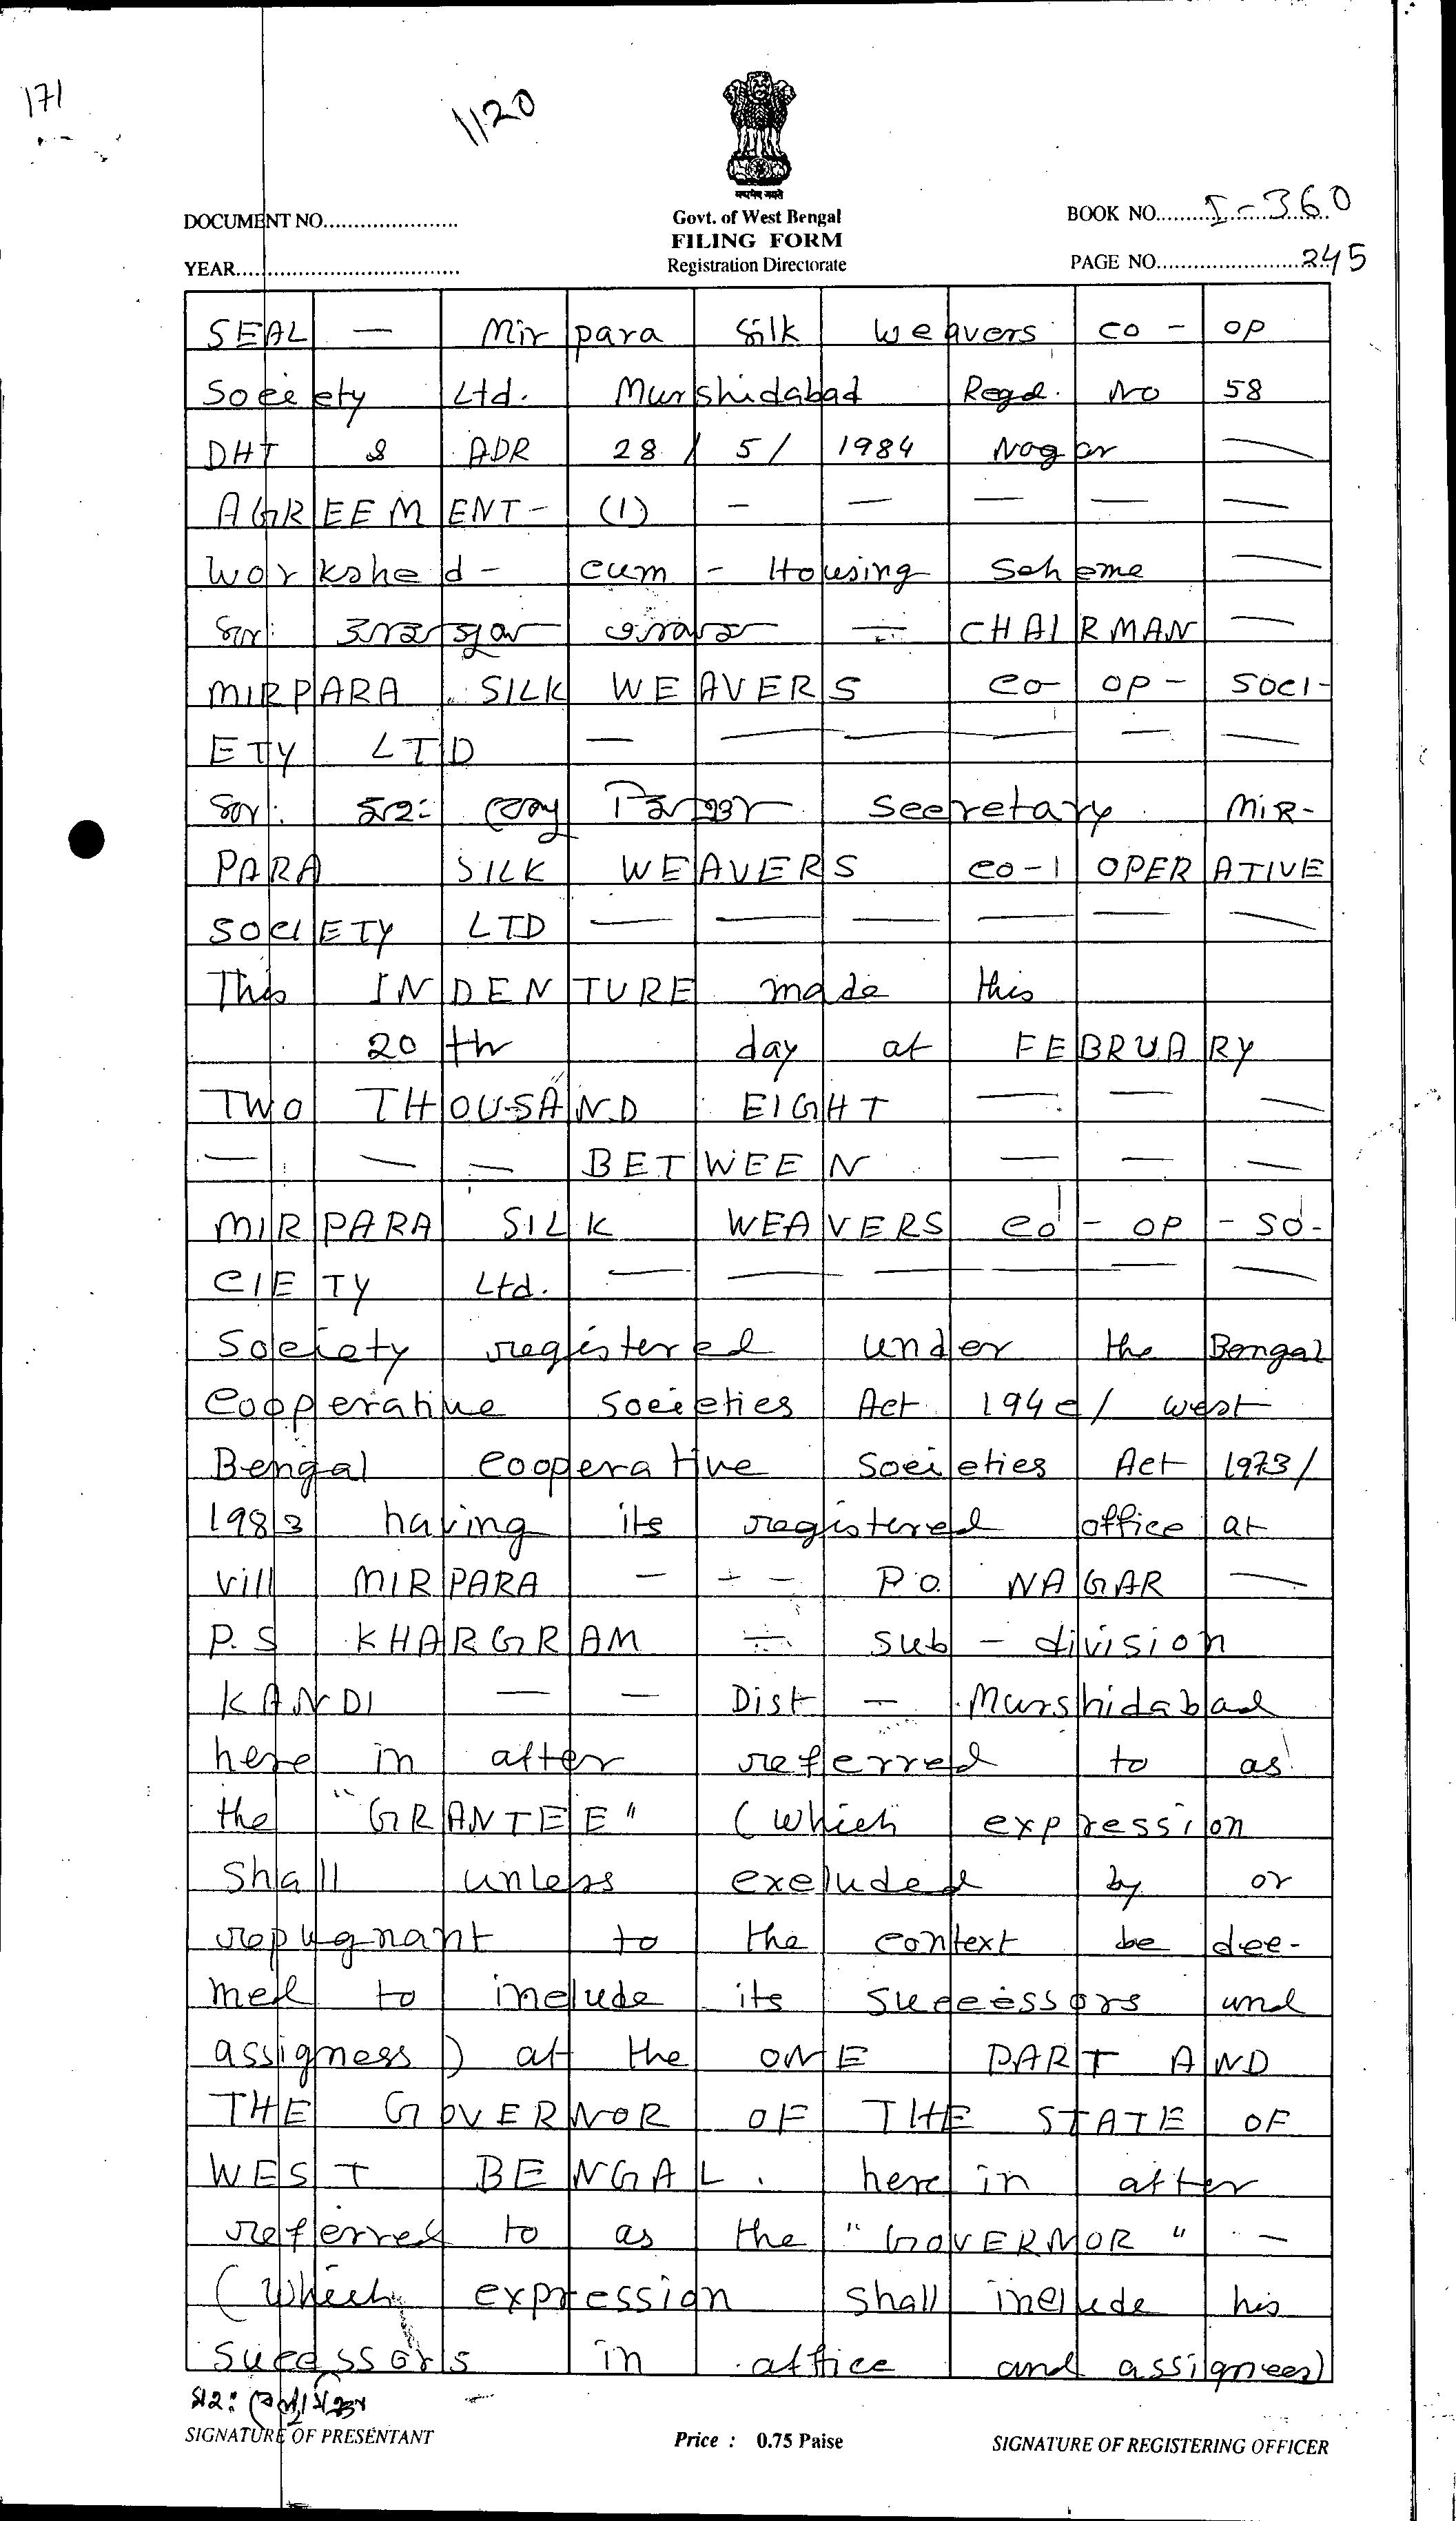 171
1120
सत्यमेव जयते
DOCUMENT NO......................
Govt. of West Bengal
BOOK NO. I-360
FILING FORM
YEAR..................................
Registration Directorate
PAGE NO. 245
SEAL — Mirpara Silk Weavers co-op
Society Ltd. Murshidabad Regd. No 58
DHT & ADR 28/5/1984 Nagar —
AGREEMENT- (1) - — — — —
Workshed-cum-Housing Scheme —
— CHAIRMAN —
MIRPARA SILK WEAVERS co-op-Soci-
ETY LTD — — — — — —
Secretary MIR-
PARA SILK WEAVERS co-OPERATIVE
SOCIETY LTD — — — — — —
This INDENTURE made this
20th day at FEBRUARY
TWO THOUSAND EIGHT — — —
— — — BETWEEN — — —
MIRPARA SILK WEAVERS co-op-So-
CIETY Ltd. — — — — — —
Society registered under the Bengal
Cooperative Societies Act 194c/ West
Bengal Cooperative Societies Act 1973/
1983 having its registered office at
Vill MIRPARA - - - P.O. NAGAR —
P.S KHARGRAM — Sub-division
KANDI — — Dist — Murshidabad
here in after referred to as
the "GRANTEE" (which expression
Shall unless excluded by or
repugnant to the context be dee-
med to include its successors and
assigness) at the ONE PART AND
THE GOVERNOR OF THE STATE OF
WEST BENGAL. here in after
referred to as the "GOVERNOR" —
(which expression shall include his
Sucessors in office and assignees)
SIGNATURE OF PRESENTANT
Price : 0.75 Paise
SIGNATURE OF REGISTERING OFFICER